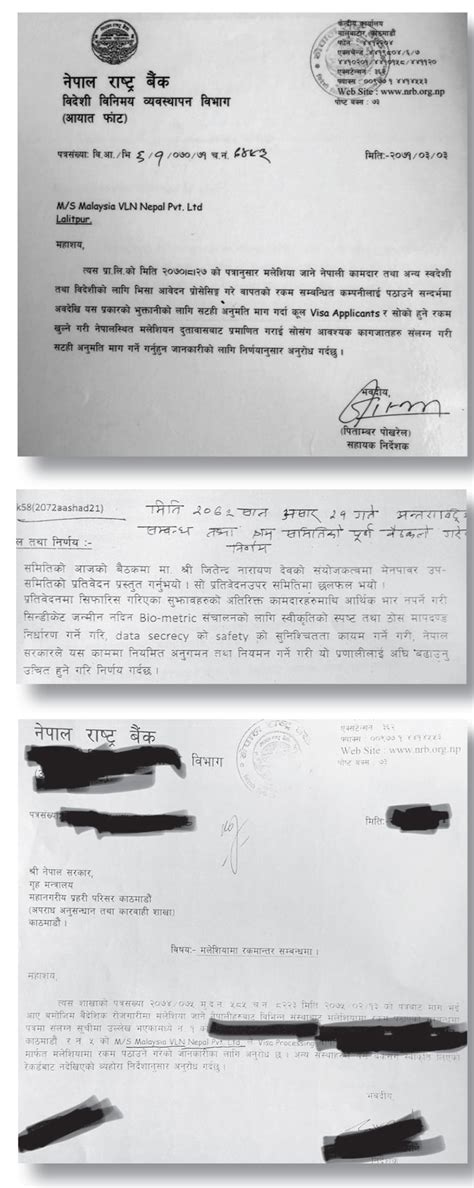 केन्द्रीय कार्यालय
बालुवाटार, काठमाडौं
Web Site : www.nrb.org.np
पोष्ट बक्स : ७३
नेपाल राष्ट्र बैंक
विदेशी विनिमय व्यवस्थापन विभाग
(आयात फाँट)
पत्रसंख्या: वि.आ./मि ६/९/०७०/७१ च.नं. ६४४३
मिति:-२०७१/०३/०३
M/S Malaysia VLN Nepal Pvt. Ltd
Lalitpur.
महाशय,
त्यस प्रा.लि.को मिति २०७०।८।२७ को पत्रानुसार मलेशिया जाने नेपाली कामदार तथा अन्य स्वदेशी
तथा विदेशीको लागि भिसा आवेदन प्रोसेसिङ्ग गरे वापतको रकम सम्बन्धित कम्पनीलाई पठाउने सन्दर्भमा
अवदेखि यस प्रकारको भुक्तानीको लागि सटही अनुमति माग गर्दा कूल Visa Applicants र सोको हुने रकम
खुल्ने गरी नेपालस्थित मलेशियन दुतावासबाट प्रमाणित गराई सोसंग आवश्यक कागजातहरु संलग्न गरी
सटही अनुमति माग गर्ने गर्नुहुन जानकारीको लागि निर्णयानुसार अनुरोध गर्दछु ।
भवदीय,
(पिताम्बर पोखरेल)
सहायक निर्देशक
k58(2072aashad21)
मिति २०७२ साल असार २१ गते अन्तर्राष्ट्रिय
सम्बन्ध तथा श्रम समितिको पूर्ण बैठकले गरेको
निर्णय
ल तथा निर्णय :-
समितिको आजको बैठकमा मा. श्री जितेन्द्र नारायण देवको संयोजकत्वमा मेनपावर उप-
समितिको प्रतिवेदन प्रस्तुत गर्नुभयो । सो प्रतिवेदनउपर समितिमा छलफल भयो ।
प्रतिवेदनमा सिफारिस गरिएका सुझावहरुको अतिरिक्त कामदारहरुमाथि आर्थिक भार नपर्ने गरी
सिन्डीकेट जन्मीन नदिन Bio-metric संचालनको लागि स्वीकृतिको स्पष्ट तथा ठोस मापदण्ड
निर्धारण गर्ने गरि, data secrecy को safety को सुनिश्चितता कायम गर्ने गरी, नेपाल
सरकारले यस काममा नियमित अनुगमन तथा नियमन गर्ने गरी यो प्रणालीलाई अघि बढाउनु
उचित हुने गरि निर्णय गर्दछ ।
नेपाल राष्ट्र बैंक
विभाग
एक्सटेन्सन : ३६२
Web Site : www.nrb.org.np
पोष्ट बक्स : ७३
पत्रसंख्या
मिति:
श्री नेपाल सरकार,
गृह मन्त्रालय
महानगरीय प्रहरी परिसर काठमाडौं
(अपराध अनुसन्धान तथा कारवाही शाखा)
काठमाडौं ।
विषय:- मलेशियामा रकमान्तर सम्बन्धमा ।
महाशय,
त्यस शाखाको पत्रसंख्या २०७४/०७५ मु.द.नं ५८५ च.नं ८२२३ मिति २०७५/०२/१३ को पत्रबाट माग भई
आए बमोजिम वैदेशिक रोजगारीमा मलेशिया जाने नेपालीहरुबाट विभिन्न संस्थाबाट मलेशियामा रकम
पत्रमा संलग्न सूचीमा उल्लेख भएकामध्ये न. १ को
काठमाडौं र न. ५ को M/S Malaysia VLN Nepal Pvt. Ltd. ले Visa Processing
मार्फत मलेशियामा रकम पठाउने गरेको जानकारीका लागि अनुरोध छ । अन्य संस्थाहरु
रेकर्डबाट नदेखिएको व्यहोरा निर्देशानुसार अनुरोध गर्दछु ।
भवदीय,